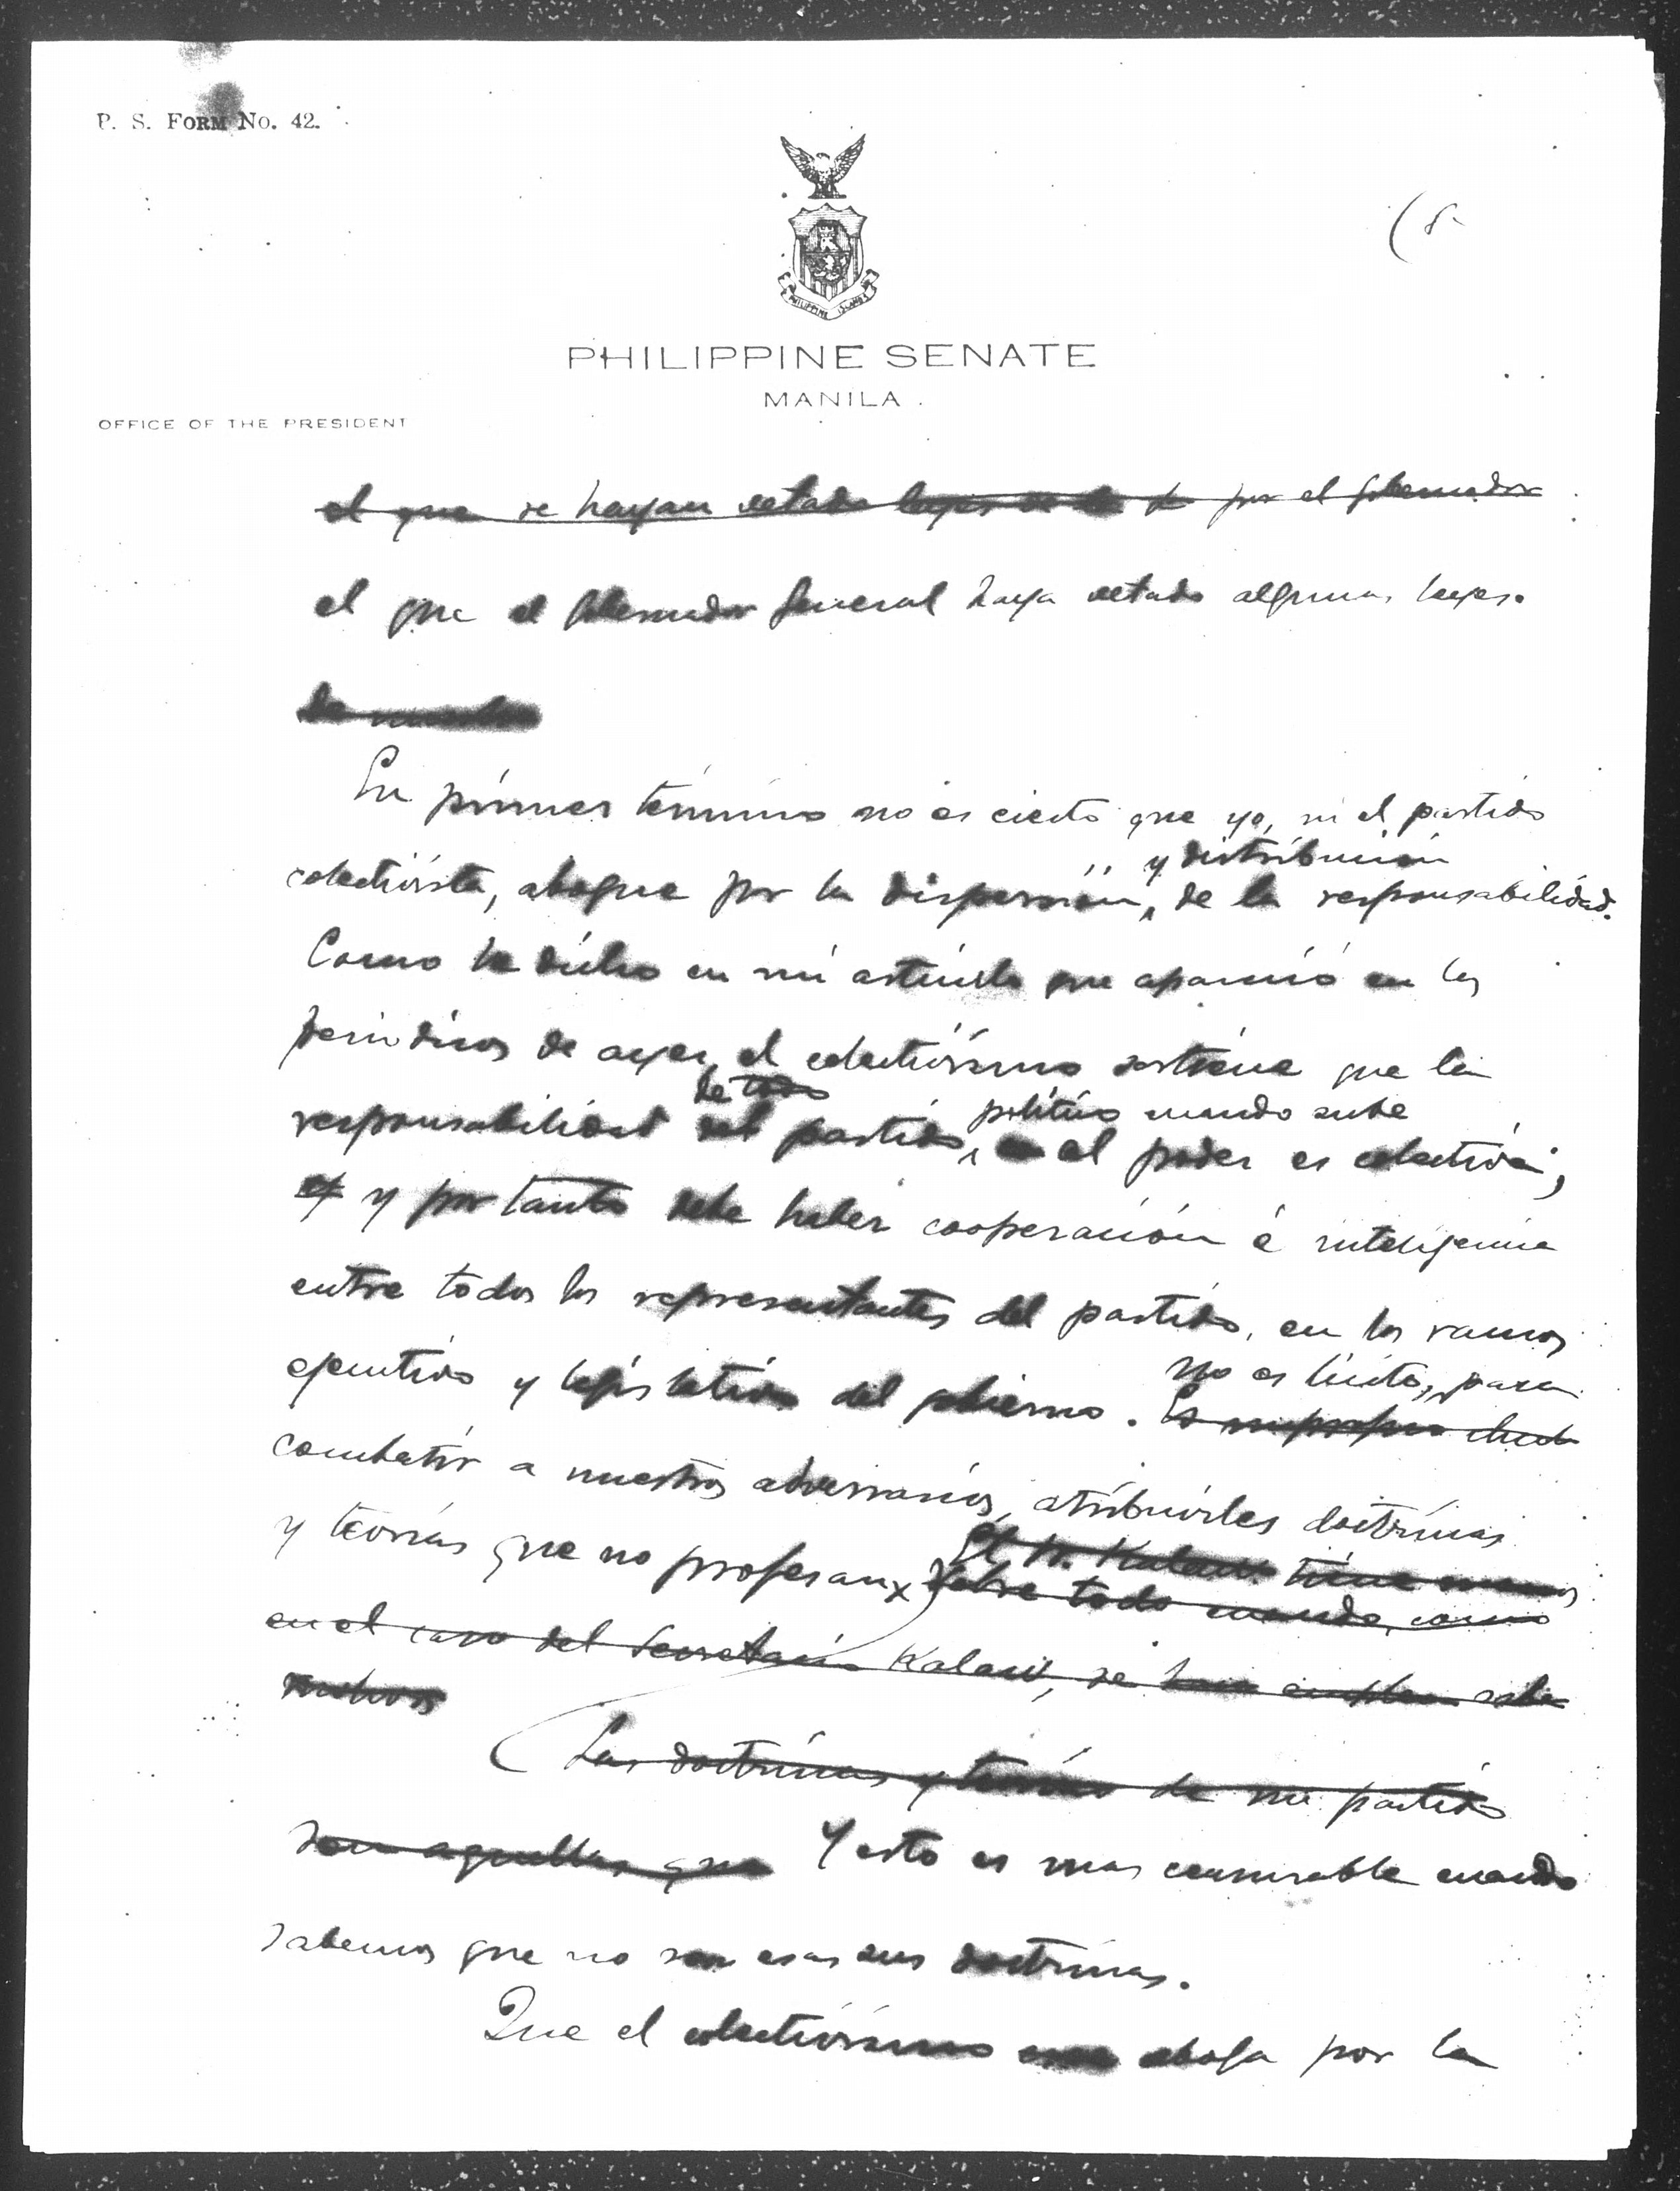 P. S. FORM No. 42.
(8
PHILIPPINE ISLANDS
PHILIPPINE SENATE
MANILA
OFFICE OF THE PRESIDENT
el que se hayan vetado leyes de la por el gobernador
el que el Gobernador General haya vetado algunas leyes.
de
En primer término no es cierto que yo, ni el partido
y distribución
colectivista, abogue por la dispersión, de la responsabilidad.
Como he dicho en mi artículo que apareció en los
periódicos de ayer, el colectivismo sostiene que la
de todo
político cuando sube
responsabilidad del partido, al poder es colectiva;
y por tanto debe haber cooperación é inteligencia
entre todos los representantes del partido, en los ramos
no es lícito, para
ejecutivo y legislativo del gobierno. Es impropio
combatir a nuestros adversarios, atribuirles doctrinas
El Sr. Kalaw tiene
y teorías que no profesan, sobre todo cuando, como
en el caso del Secretario Kalaw, se
motivos
Las doctrinas y teorías de mi partido
son aquellas que Y esto es mas censurable cuando
sabemos que no son esas sus doctrinas.
Que el colectivismo aboga por la